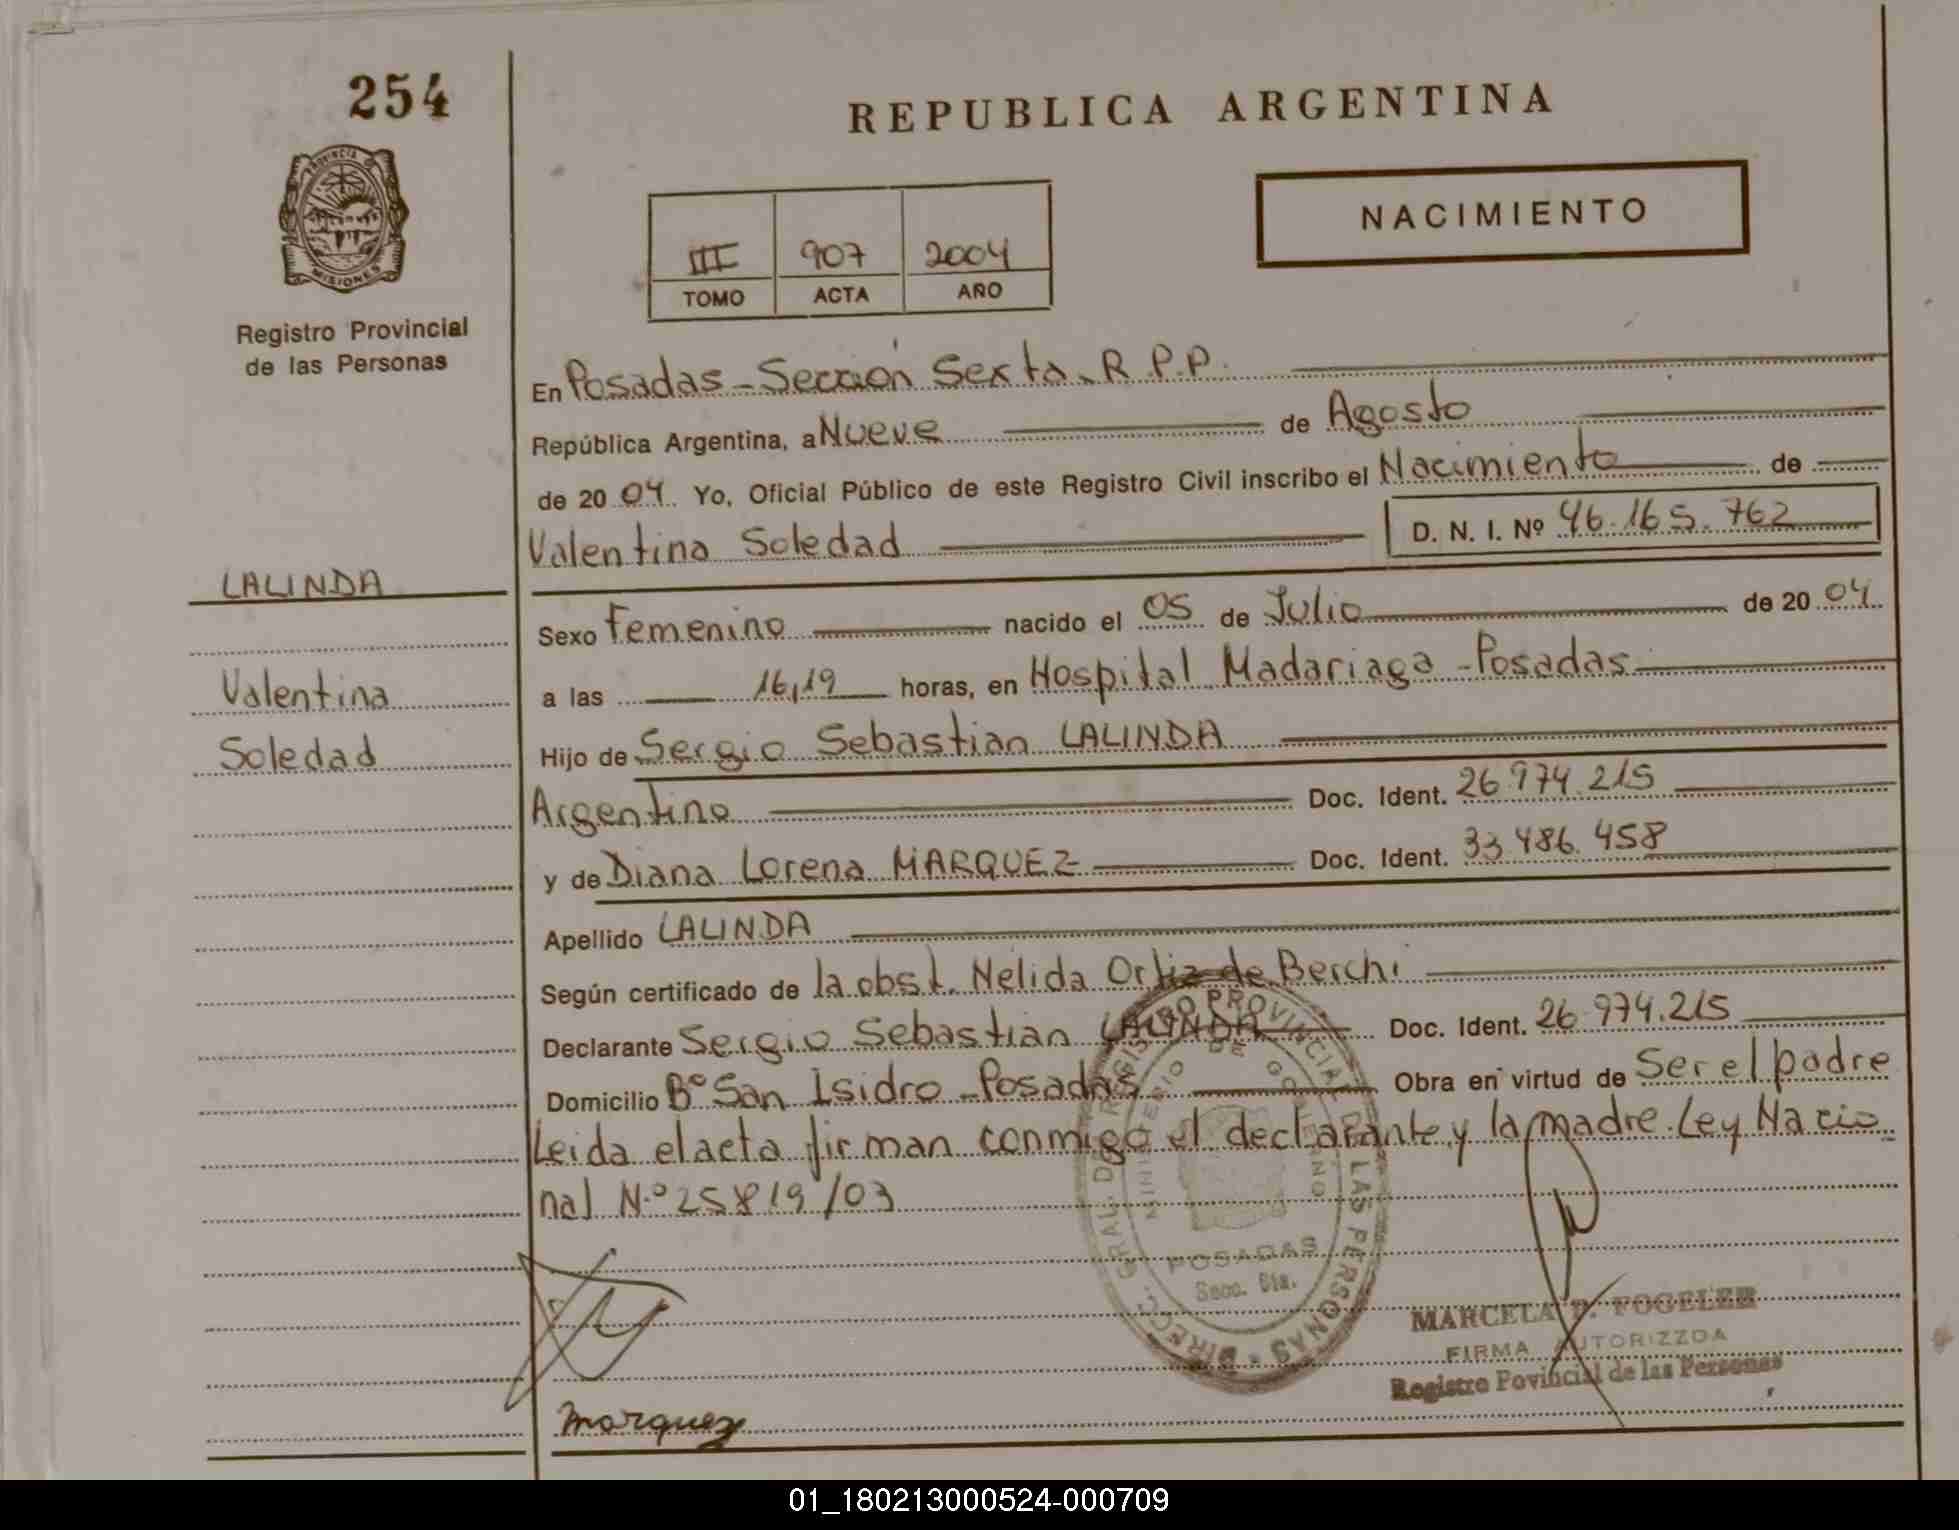 254
REPUBLICA ARGENTINA
PROVINCIA DE
MISIONES
Registro Provincial
de las Personas
III 907 2004
TOMO ACTA AÑO
NACIMIENTO
En Posadas - Sección Sexta - R.P.P.
República Argentina, a Nueve de Agosto
de 2004. Yo, Oficial Público de este Registro Civil inscribo el Nacimiento de
Valentina Soledad D. N. I. Nº 46.165.762
LALINDA
Sexo Femenino nacido el 05 de Julio de 2004
Valentina
a las 16,19 horas, en Hospital Madariaga - Posadas
Soledad
Hijo de Sergio Sebastian LALINDA
Argentino Doc. Ident. 26.974.215
y de Diana Lorena MARQUEZ Doc. Ident. 33.486.458
Apellido LALINDA
Según certificado de la obst. Nelida Ortiz de Berchi
Declarante Sergio Sebastian LALINDA Doc. Ident. 26.974.215
Domicilio Bº San Isidro - Posadas Obra en virtud de Ser el padre
Leida el acta firman conmigo el declarante y la madre. Ley Nacio
nal N.º 25819/03
DIRECC. GRAL. DE REGISTRO PROVINCIAL DE LAS PERSONAS
MINISTERIO DE GOBIERNO
POSADAS
Secc. 6ta.
MARCELA P. FOGELER
FIRMA AUTORIZZDA
Registro Povincial de las Personas
Marquez
01_180213000524-000709